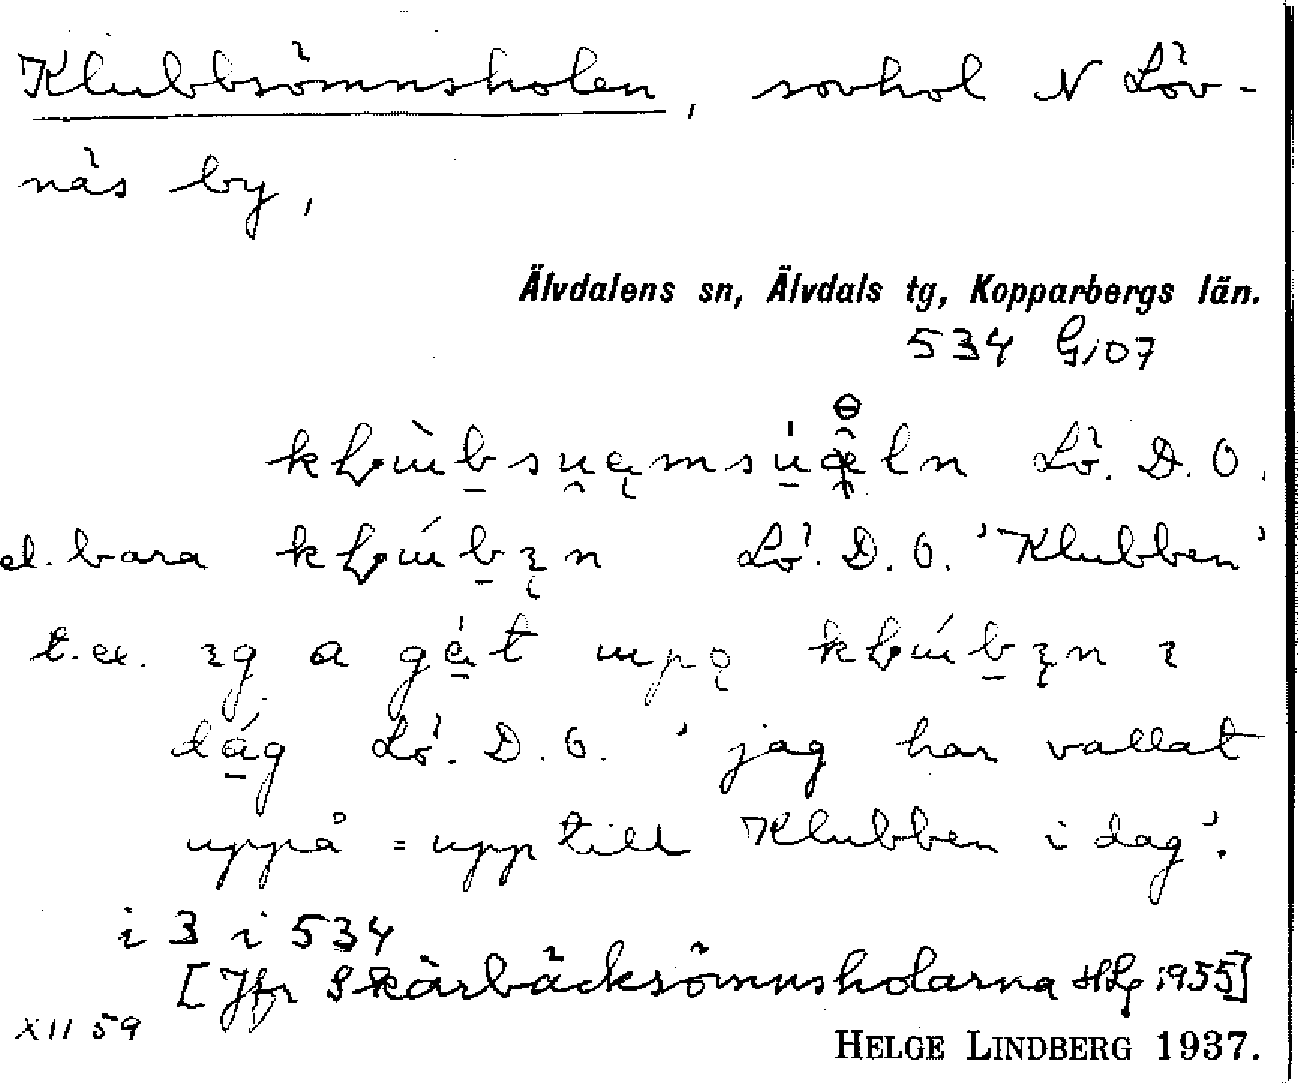 Klubbsömnsholen, sovhol N Löv-
näs by,
Älvdalens sn, Älvdals tg, Kopparbergs län.
534 G;07
Lö. D. O.
el. bara Lö. D. O. 'Klubben'
t.ex. a
Lö. D. O. 'jag har vallat
uppå = upp till Klubben i dag'.
i 3 i 534
[Jfr Skärbäcksömnsholarna HLg 1955]
XII 59
HELGE LINDBERG 1937.